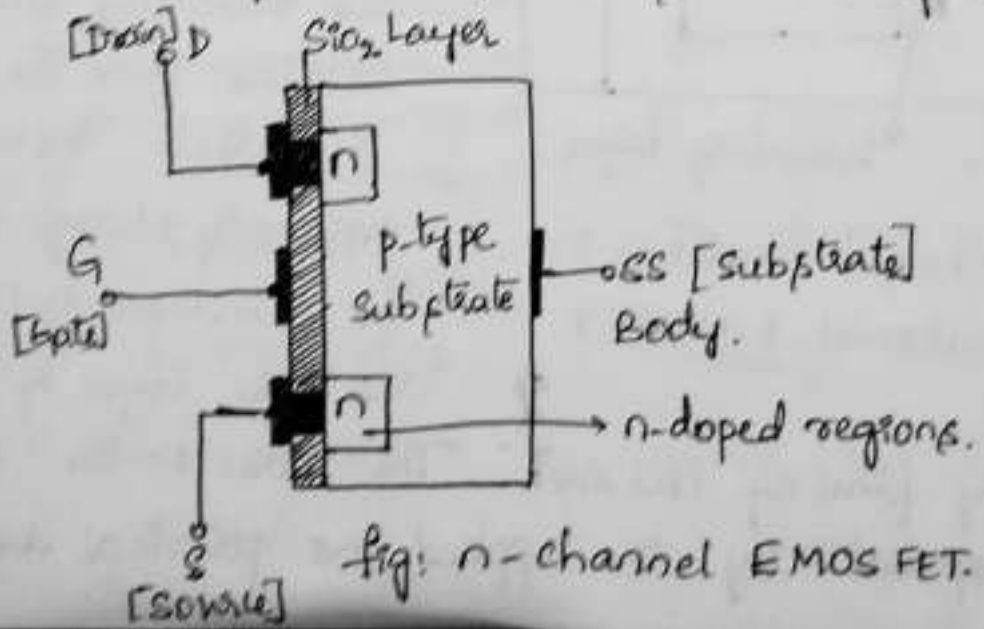 [Drain] D
SiO₂ Layer
n
p-type
substrate
G
[Gate]
SS [substrate]
Body.
n
n-doped regions.
S
[Source]
fig: n-channel EMOSFET.